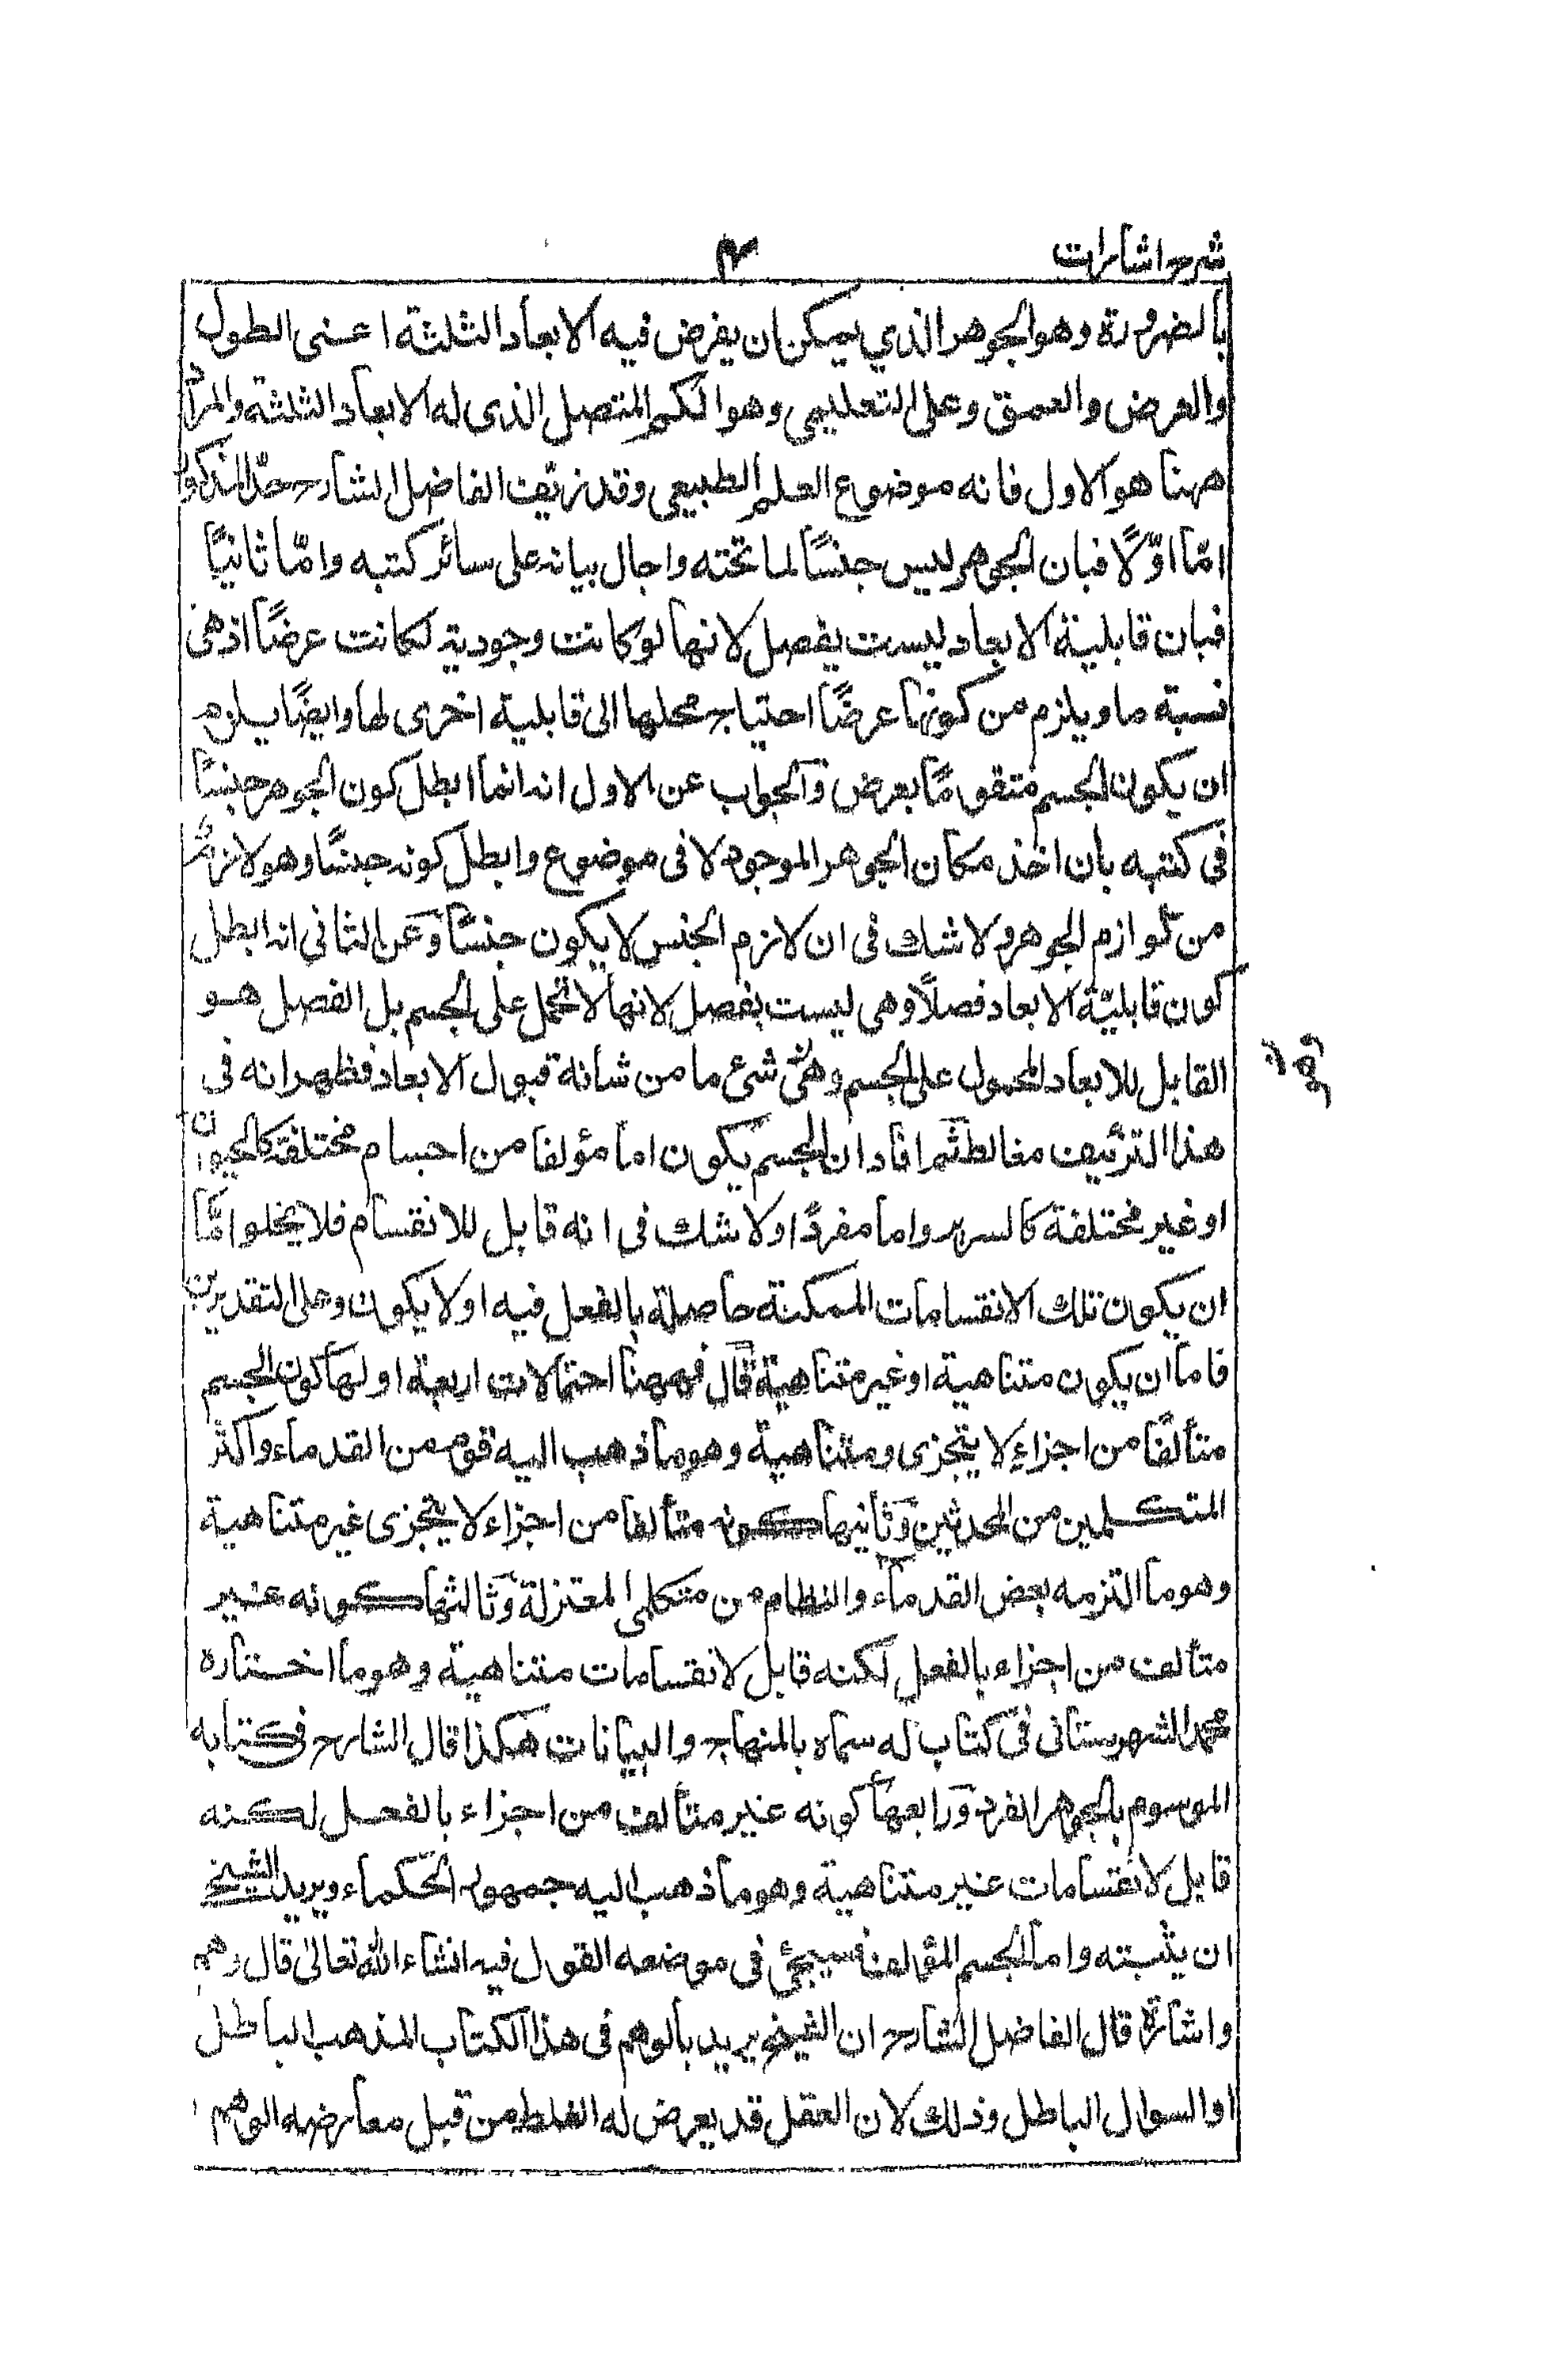 شرح اشارات
۳
بالضرورة وهو الجوهر الذي يمكن ان يفرض فيه الابعاد الثلثة اعنى الطول
والعرض والعمق وعلى التعليمى وهو الكم المتصل الذى له الابعاد الثلثة والمراد
ههنا هو الاول فانه موضوع العلم الطبيعى وقد زيّف الفاضل الشارح حدّ المذكور
امّا اوّلًا فبان الجوهر ليس جنسًا لما تحته واحال بيانه على سائر كتبه وامّا ثانيًا
فبان قابلية الابعاد ليست بفصل لانها لو كانت وجودية لكانت عرضًا اذ هى
نسبة ما ويلزم من كونها عرضًا احتياج محلها الى قابلية اخرى لها وايضًا يلزم
ان يكون الجسم متقومًا بعرض والجواب عن الاول انه انما ابطل كون الجوهر جنسًا
فى كتبه بان اخذ مكان الجوهر الموجود لا فى موضوع وابطل كونه جنسًا وهو لازم
من لوازم الجوهر ولا شك فى ان لازم الجنس لا يكون جنسًا وعن الثانى انه ابطل
كون قابليّة الابعاد فصلًا وهى ليست بفصل لانها لا تحمل على الجسم بل الفصل هو
القابل للابعاد المحمول على الجسم وهو شىء ما من شانه قبول الابعاد فظهر انه فى
هذا التزئيف مغالط ثم افاد ان الجسم يكون اما مؤلفا من اجسام مختلفة كالحيوان
او غير مختلفة كالسرير واما مفردًا ولا شك فى انه قابل للانقسام فلا يخلوا امّا
ان يكون تلك الانقسامات الممكنة حاصلة بالفعل فيه او لا يكون وعلى التقديرين
فاما ان يكون متناهية او غير متناهية قال فههنا احتمالات اربعة اولها كون الجسم
متألفًا من اجزاءٍ لا يتجزى ومتناهية وهو ما ذهب اليه قوم من القدماء واكثر
المتكلمين من المحدثين وثانيها كونه متألفا من اجزاء لا يتجزى غير متناهية
وهو ما التزمه بعض القدماء والنظام من متكلمى المعتزلة وثالثها كونه غير
متألف من اجزاء بالفعل لكنه قابل لانقسامات متناهية وهو ما اختاره
محمد الشهرستانى فى كتاب له سماه بالمنهاج والبيانات هكذا قال الشارح فى كتابه
الموسوم بالجوهر الفرد ورابعها كونه غير متألف من اجزاء بالفعل لكنه
قابل لانقسامات غير متناهية وهو ما ذهب اليه جمهور الحكماء ويريد الشيخ
ان يثبته واما الجسم المؤلف فسيجئ فى موضعه القول فيه انشاء الله تعالىٰ قال وهم
واشارة قال الفاضل الشارح ان الشيخ يريد بالوهم فى هذا الكتاب المذهب الباطل
او السوال الباطل وذلك لان العقل قد يعرض له الغلط من قبل معارضه الوهم